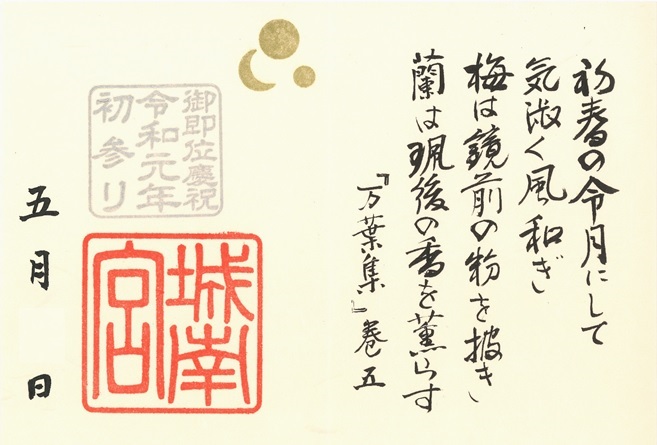 初春の令月にして
気淑く風和ぎ
梅は鏡前の粉を披き
蘭は珮後の香を薫らす
『万葉集』巻五
御即位慶祝
令和元年
初参り
城南
宮
五月　日